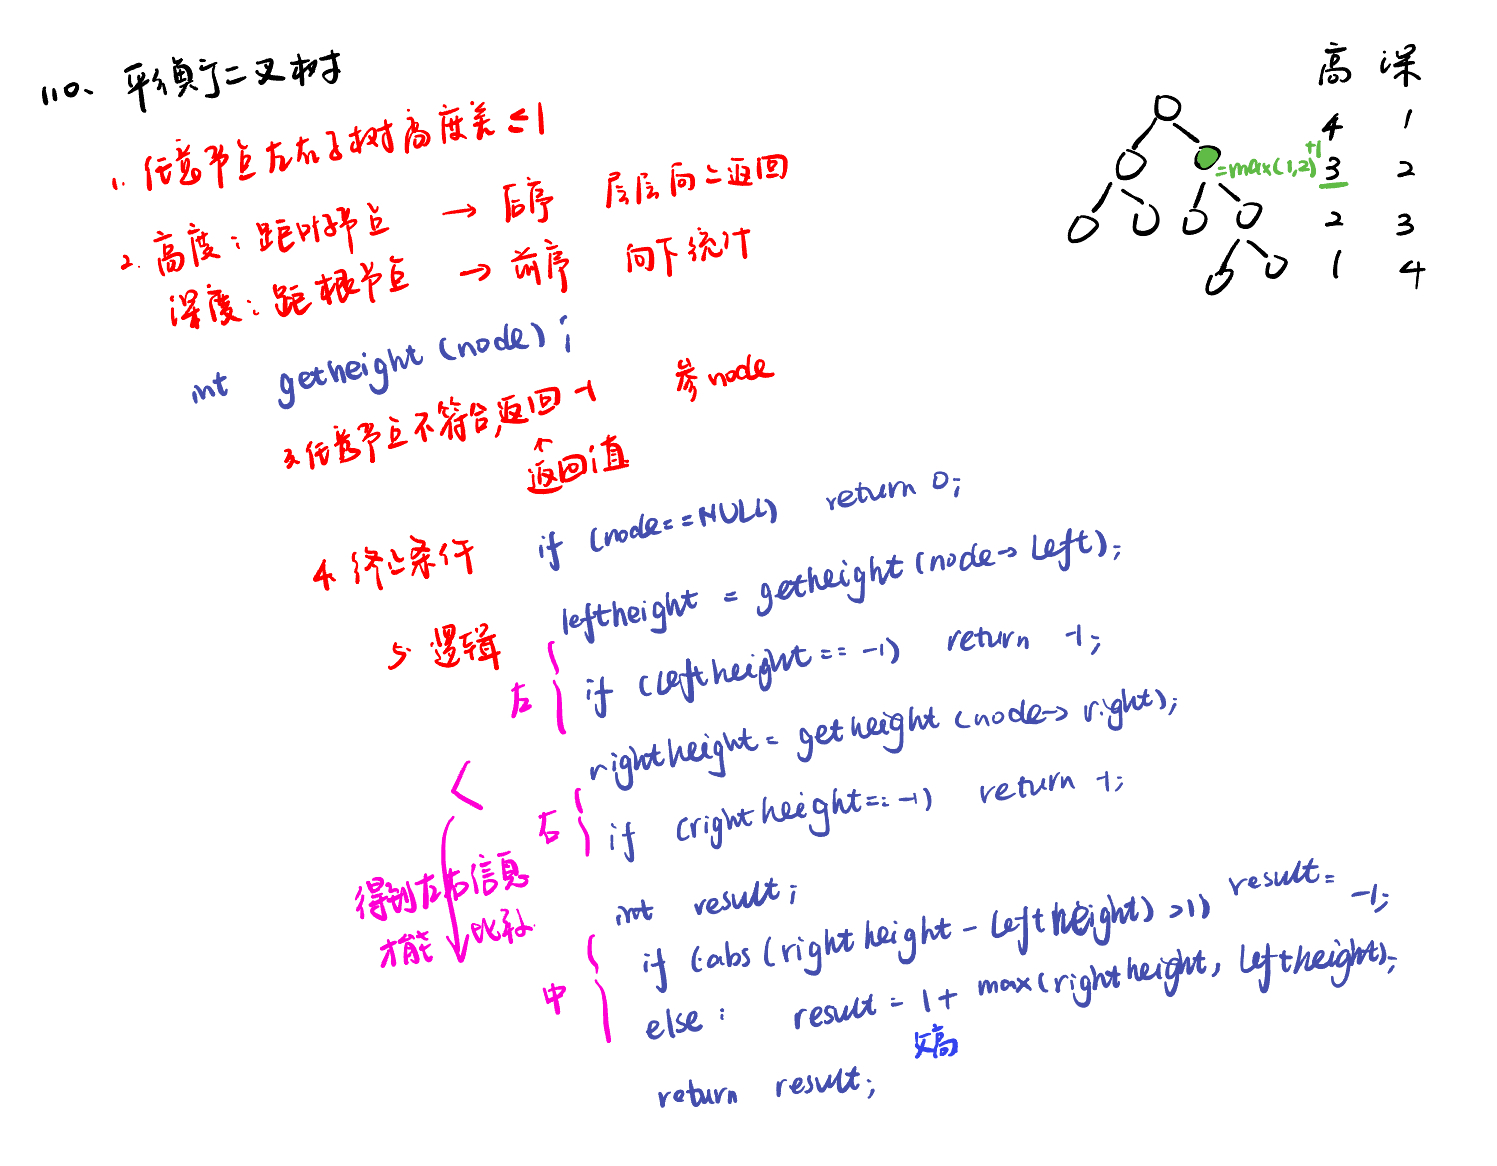 110、平衡二叉树
1. 任意节点左右子树高度差≤1
2. 高度：距叶子节点 → 后序 层层向上返回
深度：距根节点 → 前序 向下统计
int getheight (node);
参node
3. 任意节点不符合，返回 -1
↑
返回值
4. 终止条件 if (node==NULL) return 0;
5. 逻辑
leftheight = getheight (node→left);
左 if (leftheight == -1) return -1;
rightheight = getheight (node→right);
右 if (rightheight == -1) return -1;
得到左右信息
才能 比较
中
int result;
if (abs (rightheight - leftheight) >1) result = -1;
else: result = 1 + max(rightheight, leftheight);
父高
return result;
高 深
4 1
=max(1,2)+1
3 2
2 3
1 4